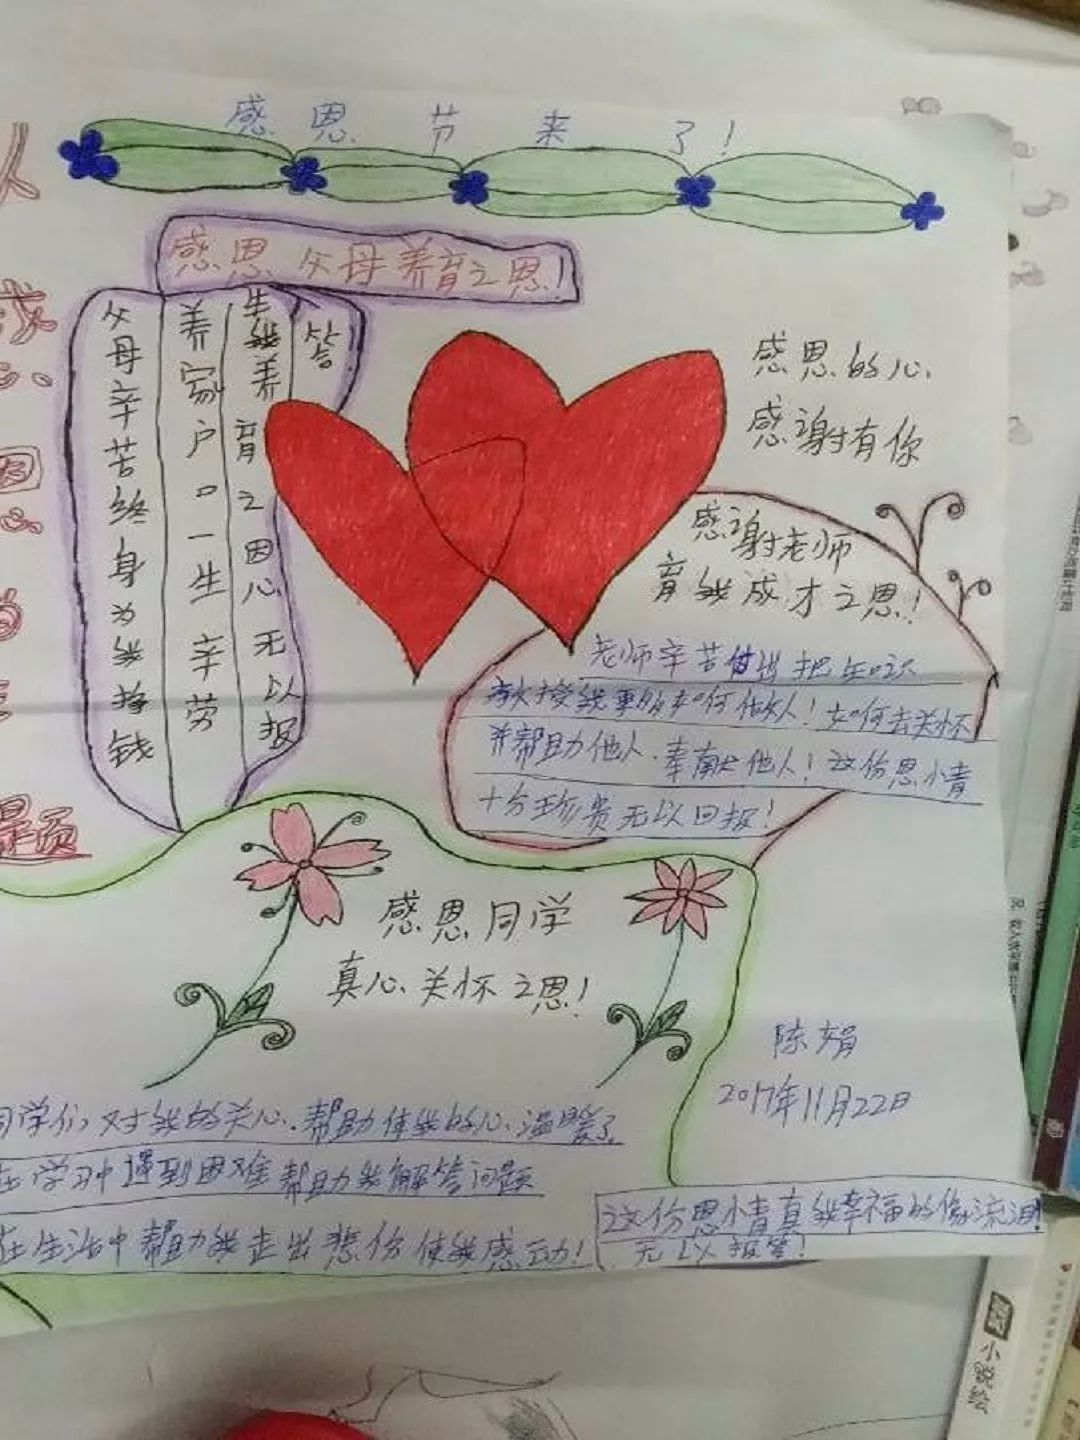 感恩节来了!
感恩父母养育之恩!
父母辛苦终身为我挣钱
养家户口一生辛劳
生我养育之恩心无以报
答
感恩的心
感谢有你
感谢老师
育我成才之恩!
老师辛苦付出把知识
教授我更如何做人!如何去关怀
并帮助他人.奉献他人!这份恩情
十分珍贵无以回报!
感恩同学
真心关怀之恩!
陈娟
2017年11月22日
同学们对我的关心.帮助使我的心温暖了
在学习中遇到困难帮助我解答问题
在生活中帮助我走出悲伤使我感动!
这份恩情真我幸福的像流泪!
无以报答!
小说绘